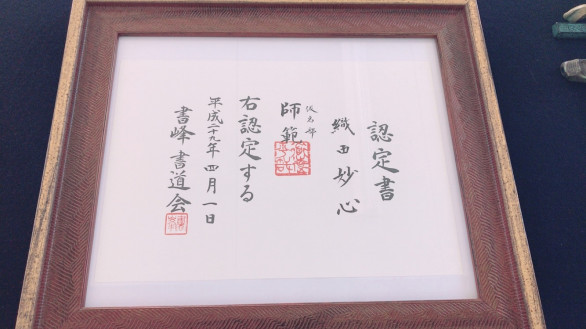 認定書
織田妙心
仮名部
師範
右認定する
平成二十九年四月一日
書峰書道会